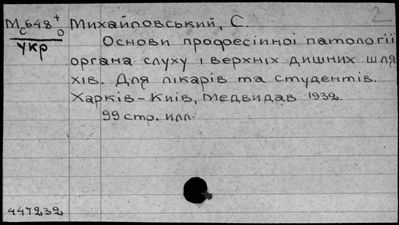 М 648 + Михайловський, С.
С О
Укр
Основи професійної патології
органа слуху і верхніх дишних шля
хів. Для лікарів та студентів.
Харків-Київ, Медвидав 1932.
99 стр. илл.
447232
2